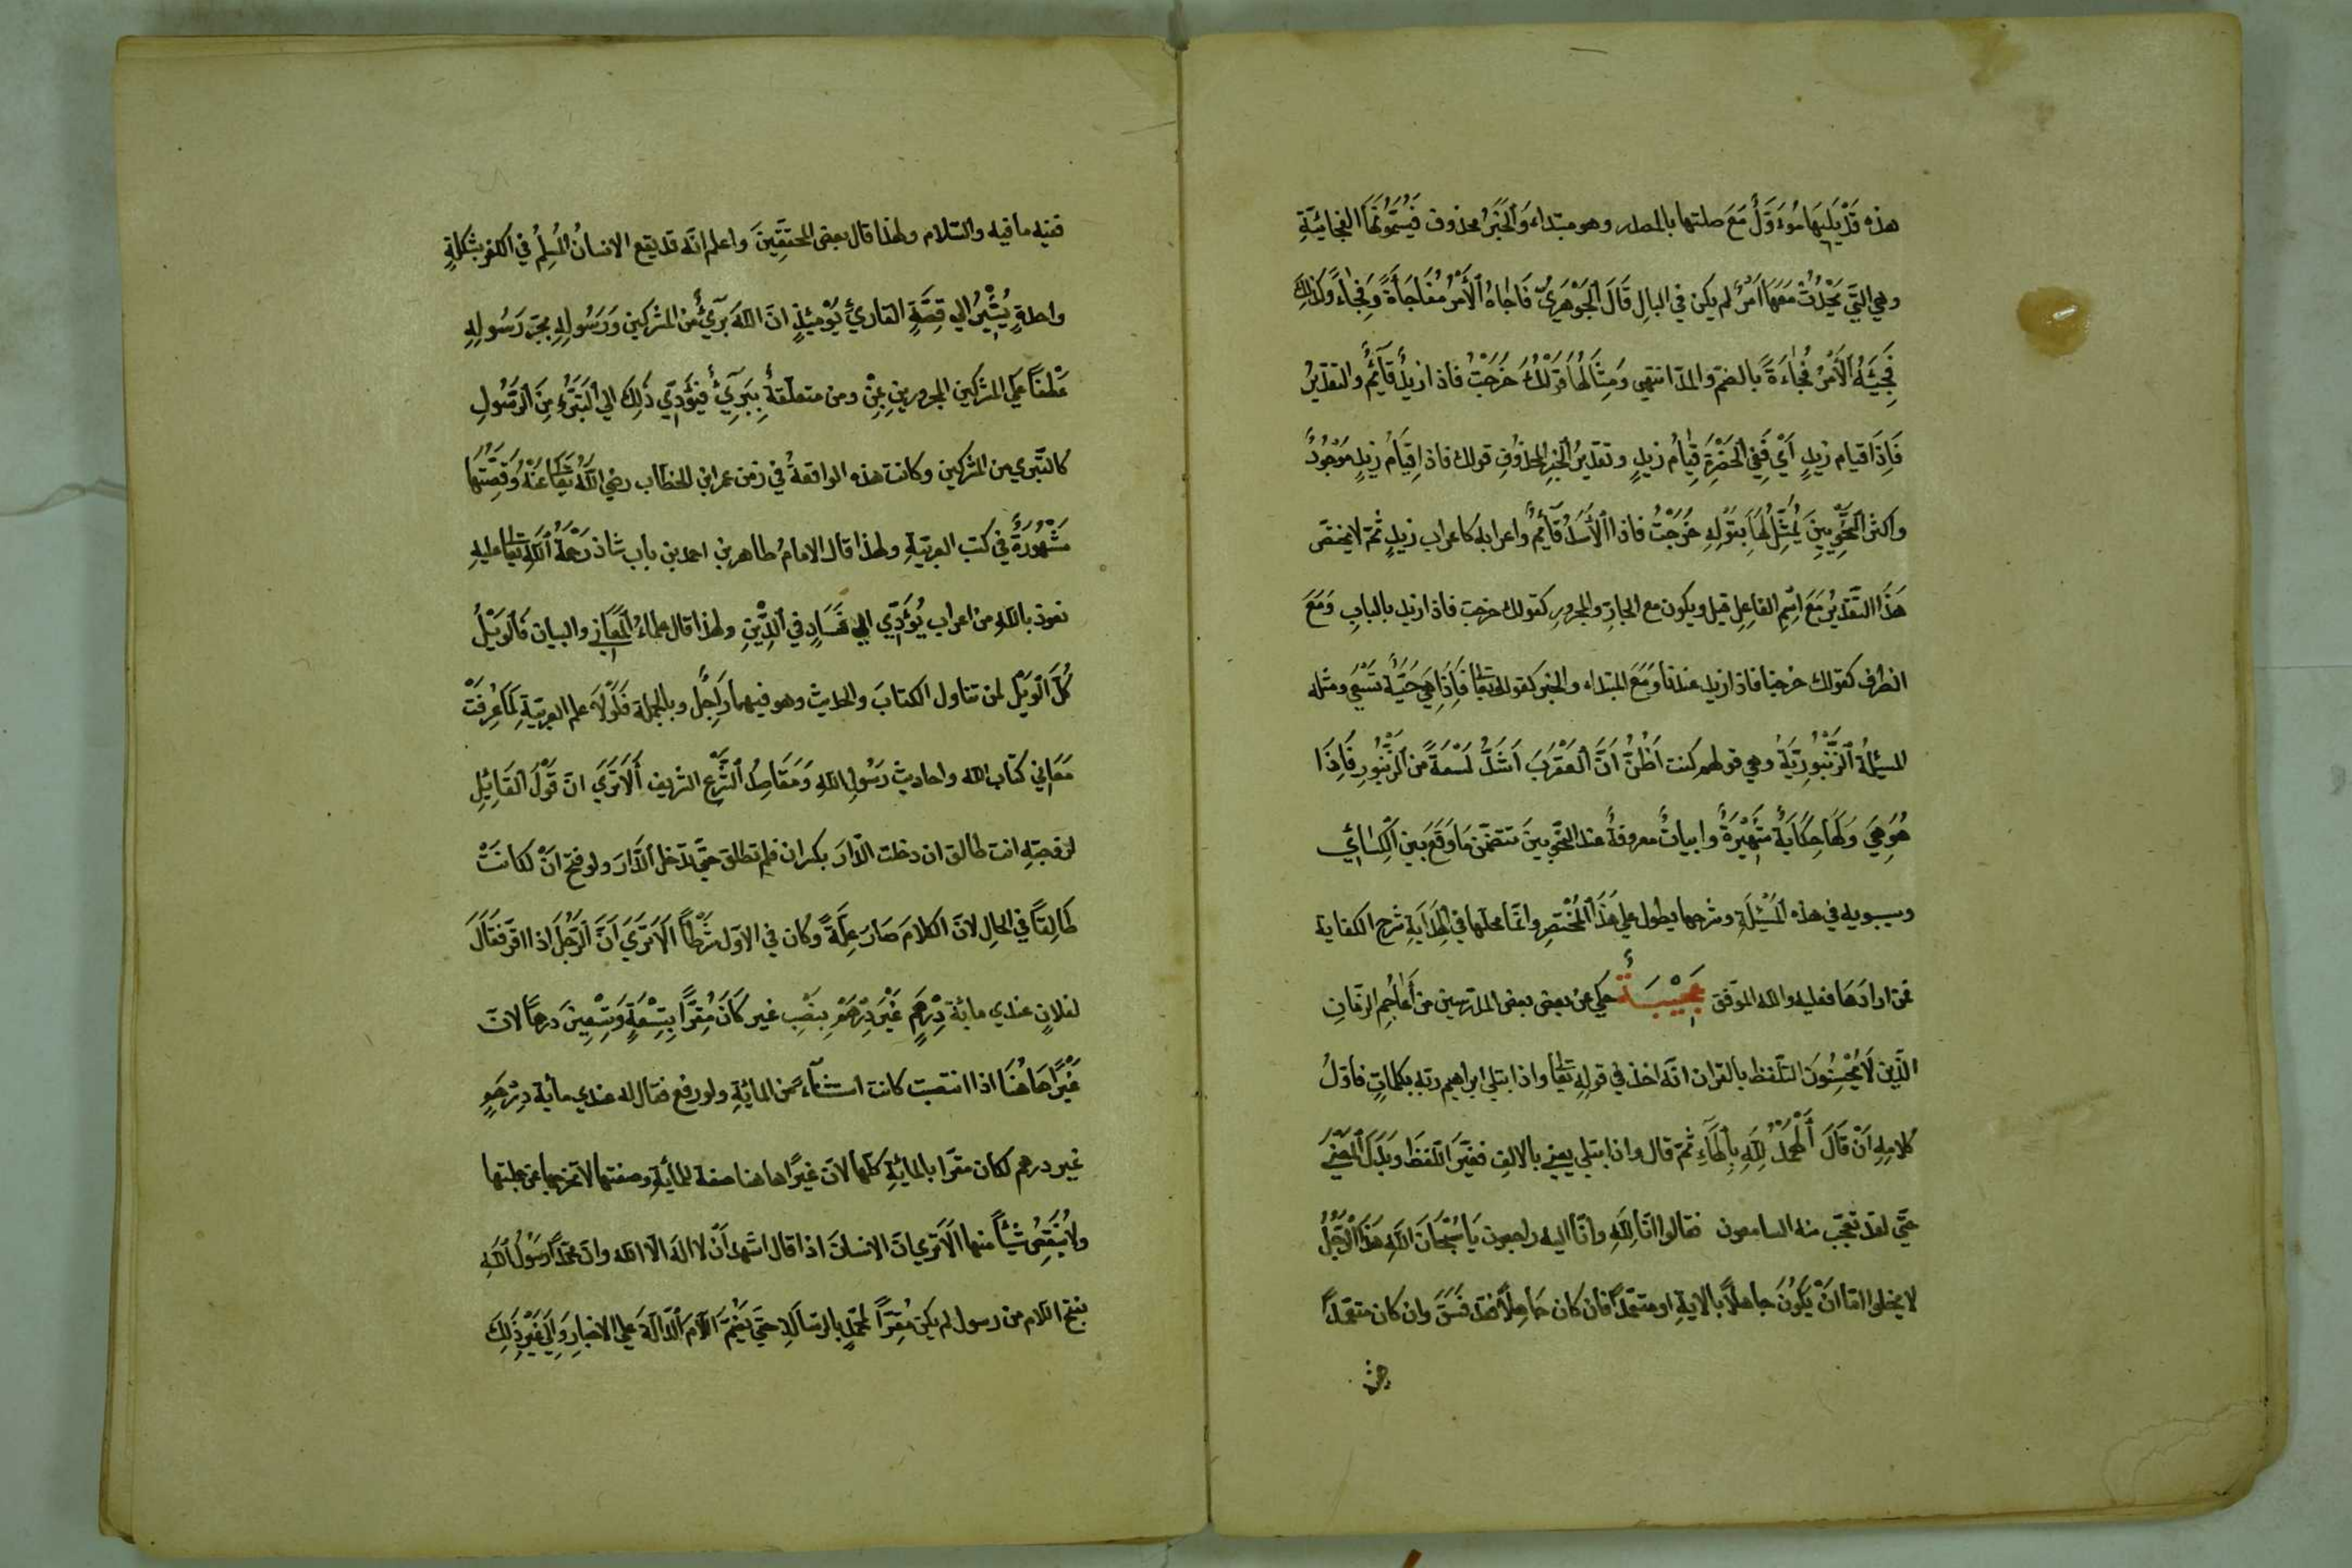 هذه قَدْ يَليهَا مُوءَوَّلٌ مَعَ صلتها بالمصدر وهو مبتداء وَالخَبَرُ محذوف فَيُسَمُّونَهَا الفجَائيّةِ
وهي التي يَحْدُثُ مَعَهَا امرٌ لم يكن في البالِ قَالَ الجَوْهَرِيُّ فَاجَاهُ الأَمْرُ مُفَاجَأَةً وَفِجَاءً وكذلك
فَجِئَهُ الأَمْرُ فُجَاءَةً بالضمّ والمدّ انتهى وَمِثَالُهَا قَوْلُكَ خَرَجْتُ فاذا زيدٌ قآئمٌ والتقديرُ
فَإِذَا قيام زيدٍ أَيْ فَفِي الحَضْرَةِ قِيَامُ زيدٍ وتقديرُ الخبرِ المحذُوفِ قولك فاذا قِيَامُ زيدٍ مَوْجُودٌ
واكثر النَّحْوِيّينَ يُمَثِّلُ لَهَا بِقَوْلِهِ خَرَجْتُ فاذا الأَسَدُ قآئِمٌ واعرابه كاعراب زيدٍ ثم لا يختصّ
هَذَا التَّقديرُ مَعَ اسْمِ الفَاعِلِ قيل ويكون مع الجارّ والمجرورِ كقولك خرجت فاذا زيد بالبابِ وَمَعَ
الظرف كقولك خرجنا فاذا زيد عندنا وَمَعَ المبتداء والخبر كقوله تعالى فَإِذَا هِيَ حَيَّةٌ تَسْعَى ومثله
المسئلةُ الزُّنْبُورِيَّةُ وهي قولهم كنت اَظُنُّ اَنَّ العَقْرَبَ اَشَدُّ لَسْعَةً من الزُّنْبُورِ فَاِذَا
هُوَ هِيَ وَلَهَا حِكَايَةٌ شَهِيْرَةٌ وابياتٌ معروفةٌ عند النّحويينَ تتضمّن مَا وَقَعَ بَين الكسائي
وسيبويه في هذه المَسْئَلَةِ وشرحها يطول على هَذَا المُخْتَصرِ وانّما محلّها في الهِدَايَةِ شرح الكفاية
فمن ارادَهَا فعليه والله الموَفّق عَجِيْبَةٌ حكي عن بعض بعض المدرسين من أَعَاجِمِ الزّمَانِ
الذّين لَا يُحْسِنُونَ التلفظ بالقران انّه اخذ في قوله تعالى واذا ابتلى ابراهيم ربه بكلماتٍ فاوّلُ
كلامِهِ اَنْ قَالَ الهَمْدُ لِلّهِ بِالهَآءِ ثمّ قال واذا بتلى يعني بالالفِ فغيّرَ اللّفظَ وَبَدَّلَ المَعْنَى
حتّى لقد تعجّب منه السامعون فقالوا انّا لِلّهِ وانّا اليه راجعون يَا سُبْحَانَ اللّهِ هَذَا الرَّجُلُ
لا يخلوا امّا انْ يَكُونَ جاهلاً بالايةِ او متعمّداً فان كان جَاهِلاً فقد فَسَقَ وان كان متعمّداً
ففيه ما فيه والسّلام ولهذا قال بعض المحقّقِينَ واعلم انّه قد يقع الانسانُ المُسلِمُ في الكفر بشَكلةٍ
واحدةٍ يُشِيْرُ الى قِصَّةِ القارئِ يَوْمئِذٍ انّ اللّهَ بَرِيٓءٌ من المشركين وَرَسُولِهِ بجرّ رَسُولِهِ
عَطْفاً على المشركين المجرورينِ بِمِنْ ومن متعلّقةٌ بِبَرِيٓءٌ فَيُؤَدّي ذَلِكَ الى التَّبَرُّءِ مِنَ الرَّسُولِ
كالتّبري من المشركين وكانت هذه الواقعةُ في زمن عمر ابن الخطّاب رضي اللّهُ تعالى عَنْهُ وَقِصَّتُهَا
مَشْهُورَةٌ في كتب العربيّةِ ولهذا قال الامامُ طاهر بن احمد بن باب شاذ رَحْمَةُ اللّهِ تعالى عليهِ
نعوذ باللّهِ من اعراب يُؤَدّي الى فَسَادٍ في الدِّيْنِ ولهذا قال علماءُ المَعَاني والبيان فَالوَيْلُ
كُلُّ الوَيْل لمن تناول الكتابَ والحديثَ وهو فيهما رَاجِلٌ وبالجملة فَلَوْلَا علم العربيّةِ لَمَا عُرِفَتْ
مَعَاني كتاب الله واحاديث رَسُولِ اللّهِ وَمَقَاصِدُ الشَّرْعِ الشريف أَلَا تَرَى انّ قَوْلَ القَائِلِ
لزوجتِهِ انت طالق ان دخلت الدّارَ بكسر ان فلم تطلق حتّى تدخل الدّارَ ولو فتح اَنْ لكانَتْ
طَالِقًا في الحالِ لانّ الكلامَ صَارَ عِلّةً وكان في الاوّل شَرْطاً اَلَا تَرَى اَنَّ الرَّجُلَ اذا اقرّ فقَالَ
لفلانٍ عندي مائة دِرْهَمٍ غَيْرَ دِرْهَمٍ بِنَصْبِ غير كَانَ مُقِرًّا بِتِسْعَةٍ وَتِسْعِينَ درهماً لانّ
غَيْرًا هَاهُنَا اذا انتصبت كانت استثنآءً من المائةِ ولو رفع فقال له عندي مائة دِرْهَمٍ
غير درهم لكان مقرّا بالمائةِ كلّها لانّ غيرًا هاهنا صفة للمائةِ وصفتها لا تخرجها عن جملتها
ولا يُنقِصُ شَيْئاً منها اَلَا ترى انّ الانسانَ اذا قال اشهد اَنْ لا اله الّا الله وانّ محمّداً رَسُولَ اللّهِ
بفتح اللّام من رسول لم يكن مُقِرّاً لمحمّدٍ بالرّسَالَةِ حتّى يَضُمَّ اللّامَ الدّالّةَ على الاخبار وَالى غَيْرِ ذَلِكَ